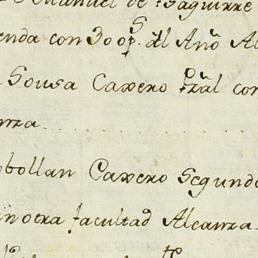 Manuel de Yaguirre
enda con 300 p.s al Año Al
Sousa Caxero Pral con
anza
bollan Caxero Segundo
in otra facultad Alcanza